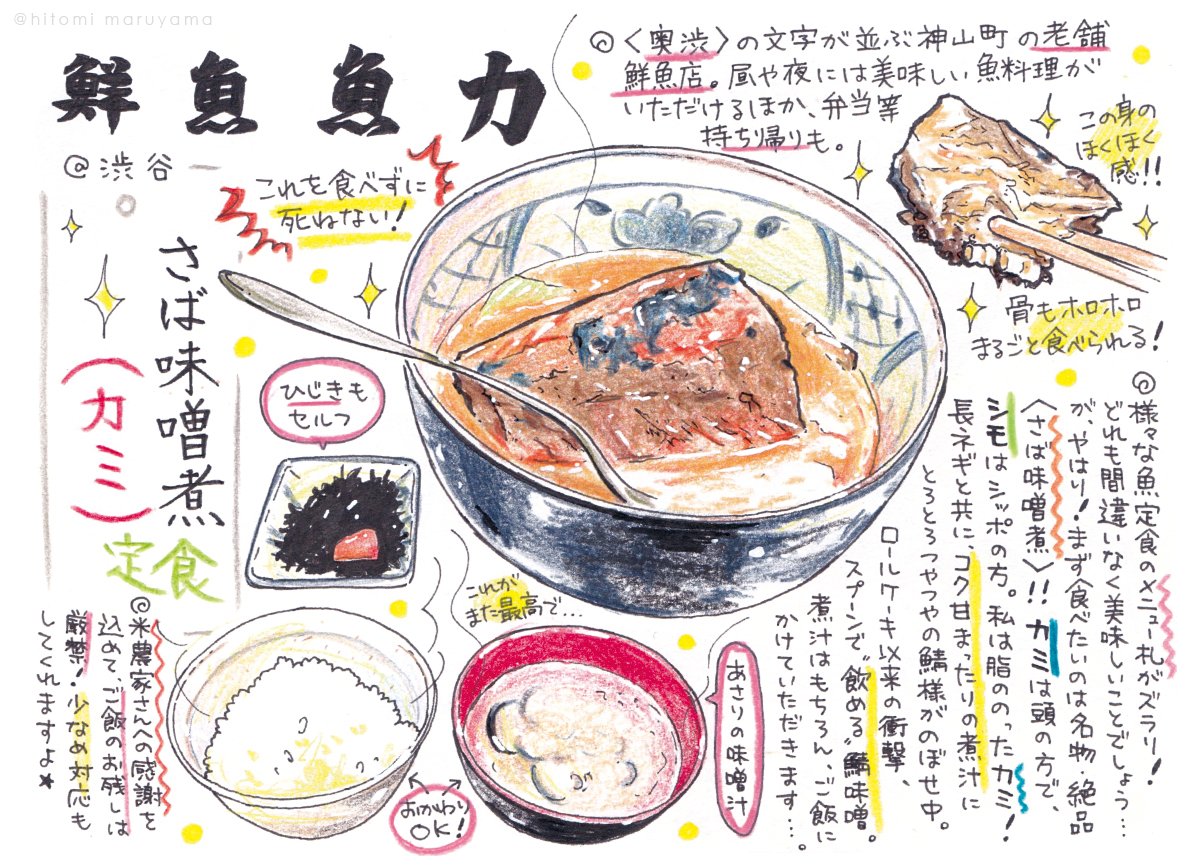 @hitomi maruyama
鮮魚魚力
@渋谷
◎〈奥渋〉の文字が並ぶ神山町の老舗
鮮魚店。昼や夜には美味しい魚料理が
いただけるほか、弁当等
持ち帰りも。
これを食べずに
死ねない!
この身の
ほくほく
感!!
骨もホロホロ
まるごと食べられる!
さば味噌煮
(カミ)
定食
ひじきも
セルフ
◎様々な魚定食のメニュー札がズラリ!
どれも間違いなく美味しいことでしょう…
が、やはり!まず食べたいのは名物・絶品
〈さば味噌煮〉!!カミは頭の方で、
シモはシッポの方。私は脂ののったカミ!
長ネギと共にコク甘まったりの煮汁に
とろとろつやつやの鯖様がのぼせ中。
ロールケーキ以来の衝撃、
スプーンで“飲める”鯖味噌。
煮汁はもちろん、ご飯に
かけていただきます…。
これが
また最高で…
あさりの味噌汁
おかわり
OK!
◎米農家さんへの感謝を
込めて、ご飯のお残しは
厳禁!少なめ対応も
してくれますよ★